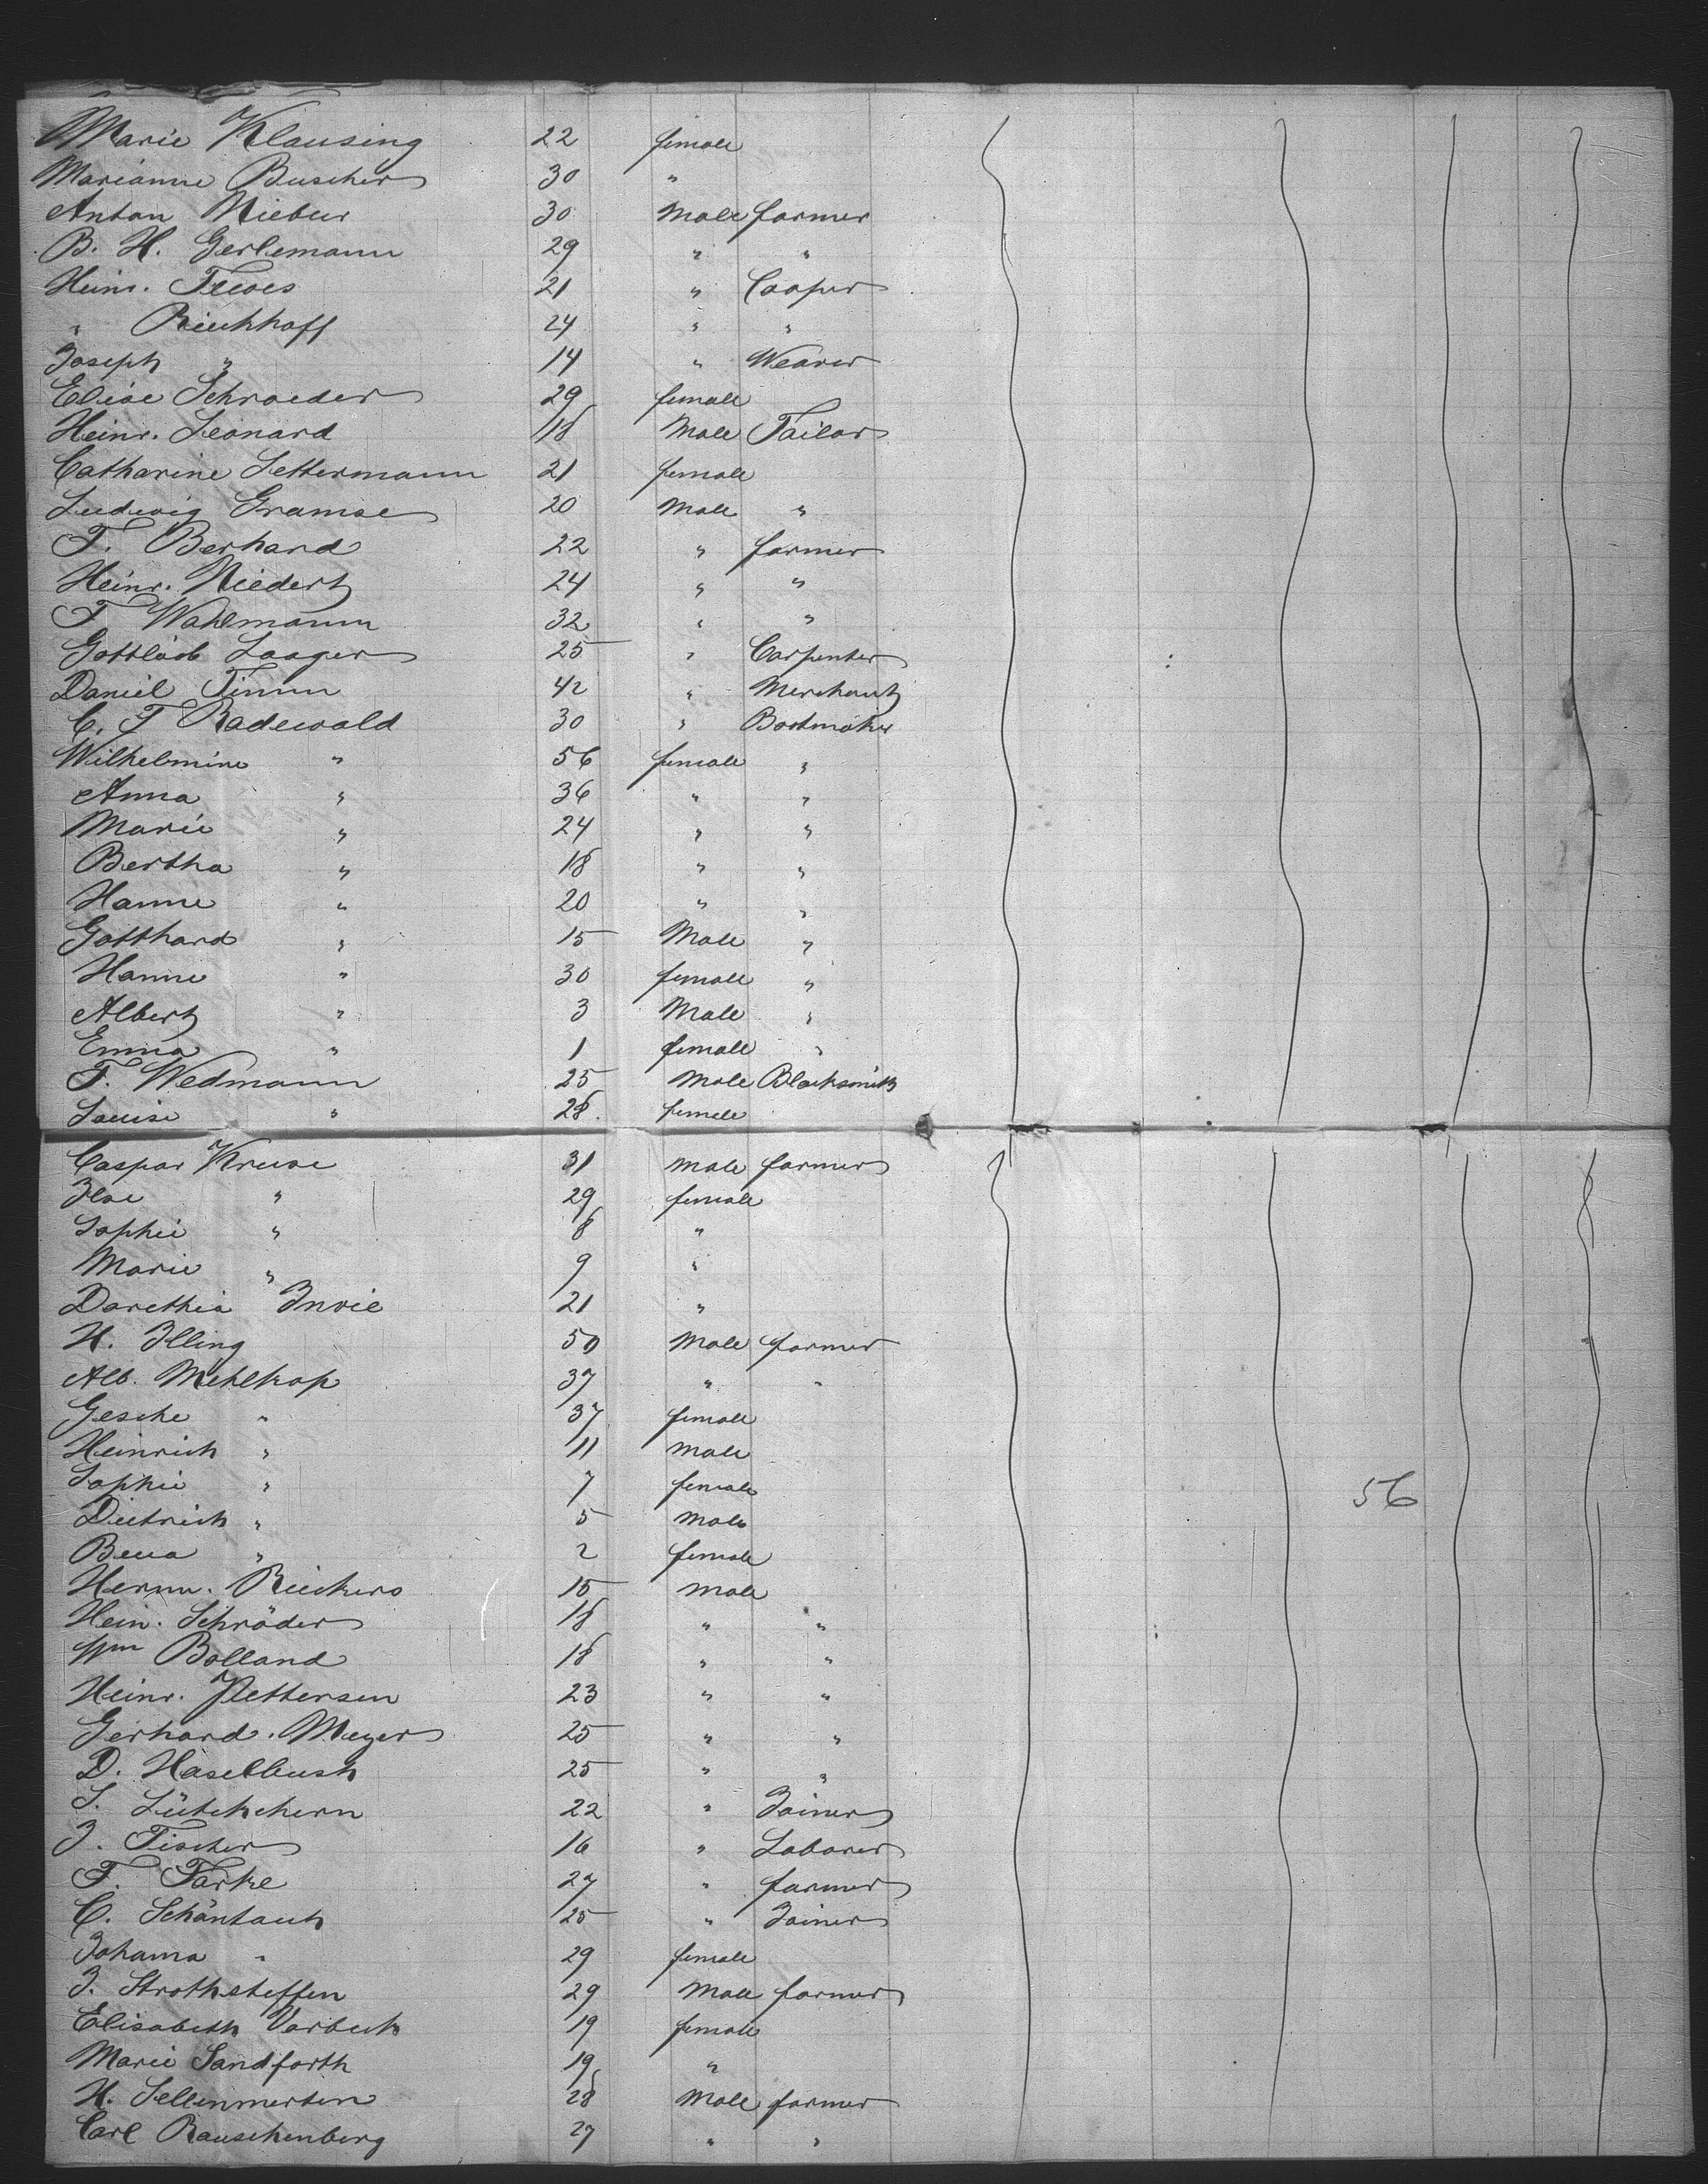 Marie Klausing 22 female
Marianne Buscher 30 "
Anton Niebur 30 Male farmer
B. H. Gerlemann 29 " "
Heinr. Trewes 21 " Cooper
" Rieckhoff 24 " "
Joseph " 14 " Weaver
Elise Schroeder 29 female
Heinr. Leonard 18 Male Tailor
Catharine Settermann 21 female
Ludwig Gramse 20 Male "
F. Berhard 22 " farmer
Heinr. Niedert 24 " "
F Wahlmann 32 " "
Gottlieb Laager 25 " Carpenter
Daniel Timm 42 " Merchant
C. F Radewald 30 " Bootmaker
Wilhelmine " 56 female "
Anna " 36 " "
Marie " 24 " "
Bertha " 18 " "
Hanne " 20 " "
Gotthard " 15 Male "
Hanne " 30 female "
Albert " 3 Male "
Emma " 1 female "
F. Wedmann 25 Male Blacksmith
Louise " 28. female
Caspar Kruse 31 Male farmer
Ilse " 29 female
Sophie " 8 "
Marie " 9 "
Dorethia 21 "
H. Illing 50 Male farmer
Alb. Mehlkop 37 " "
Gesche " 37 female
Heinrich " 11 male
Sophie " 7 female
56
Dietrich " 5 Male
Beua " 2 female
Herm. Rieckers 15 Male
Hein. Schröder 18 " "
Wm Bolland 18 " "
Heinr. Plettersen 23 " "
Gerhard. Meyer 25 " "
D. Haselbush 25 " "
22 " Joiner
J. Fischer 16 " Laborer
F. Farke 27 " farmer
C. Schöntauh 25 " Joiner
Johanna " 29 female
J. Strothsteffen 29 Male farmer
Elisabeth Varbeck 19 female
Marie Sandforth 19 "
H. Sellenmerten 28 Male farmer
Carl Rauschenberg 27 " "